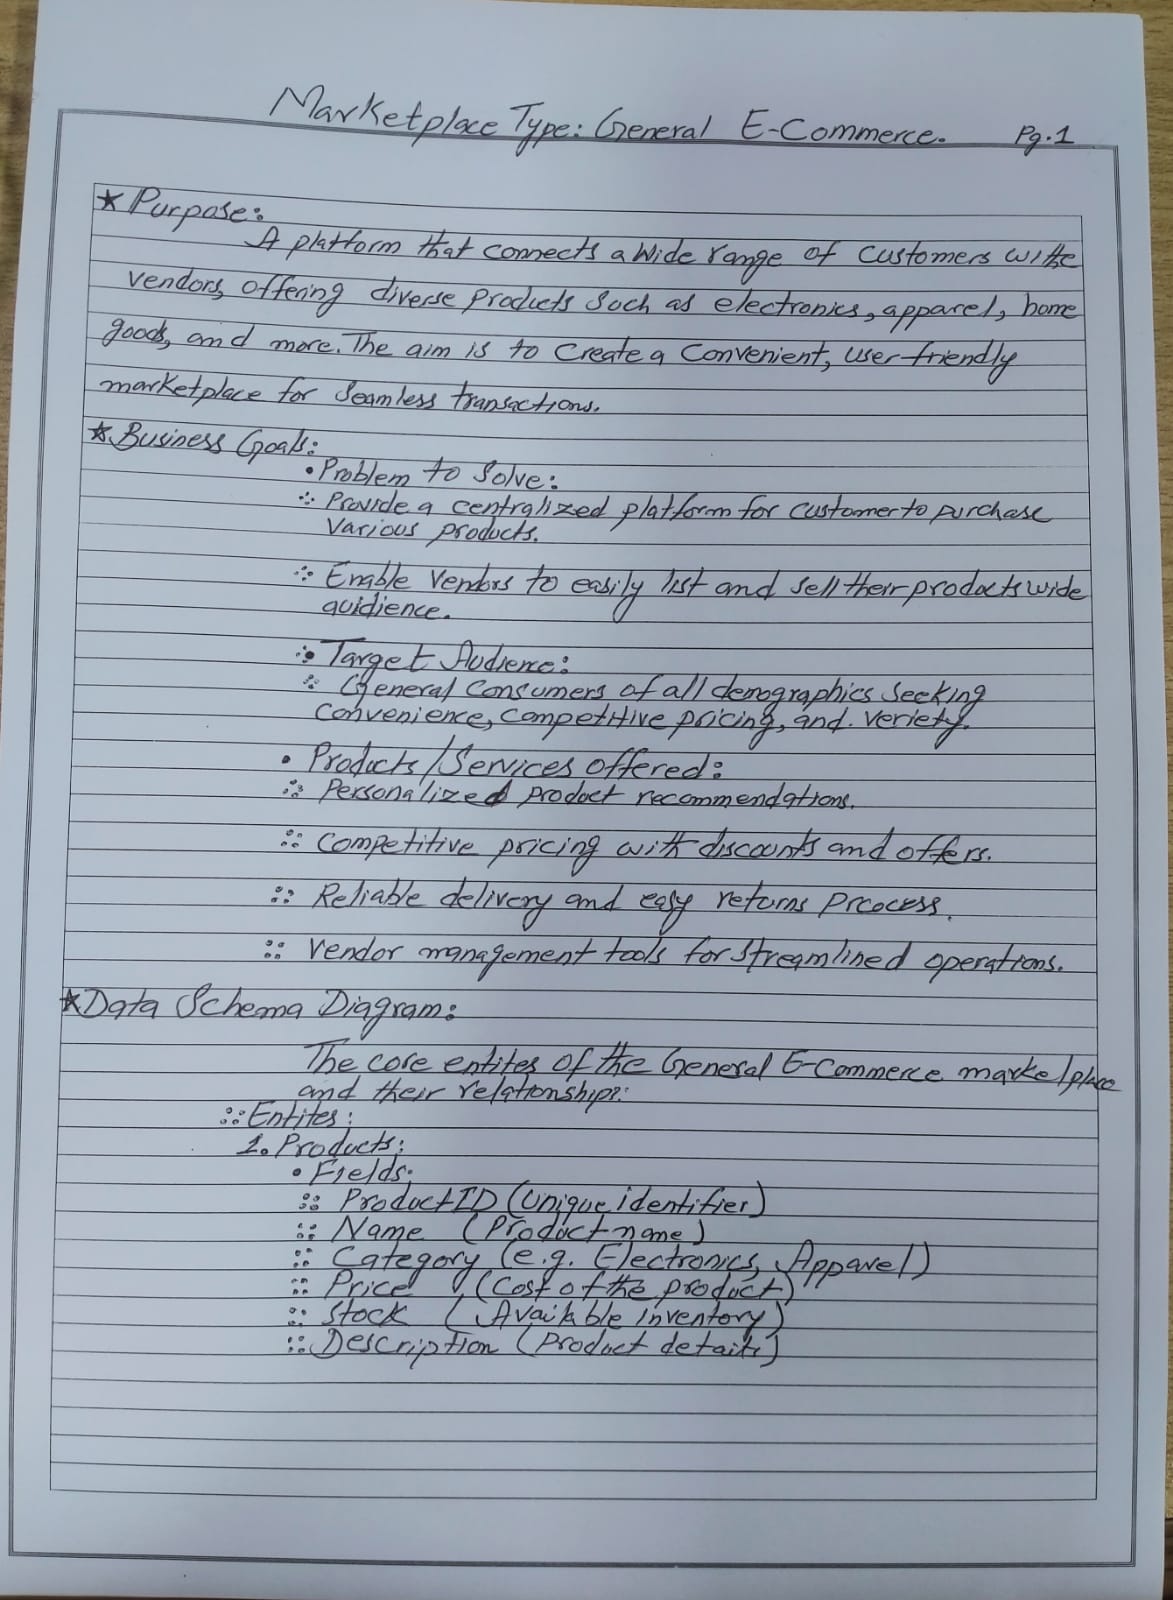 Marketplace Type: General E-Commerce. Pg.1
★ Purpose:
A platform that connects a wide range of customers withe
vendors, offering diverse products such as electronics, apparel, home
goods, and more. The aim is to create a convenient, user-friendly
marketplace for seamless transactions.
★ Business Goals:
• Problem to Solve:
Provide a centralized platform for customer to purchase
various products.
Enable vendors to easily list and sell their products wide
auidience.
• Target Audience:
General Consumers of all demographics seeking
convenience, competitive pricing, and. veriety.
• Products/Services offered:
Personalized product recommendations.
Competitive pricing with discounts and offers.
Reliable delivery and easy returns Prcocess.
Vendor management tools for streamlined operations.
★ Data Schema Diagram:
The core entites of the General E-Commerce marketplace
and their relationships:
:: Entites:
1. Products:
• Fields:
:: ProductID (Unique identifier)
:: Name (Product name)
:: Category (e.g. Electronics, Apparel)
:: Price (Cost of the product)
:: Stock (Available inventory)
:: Description (Product details)